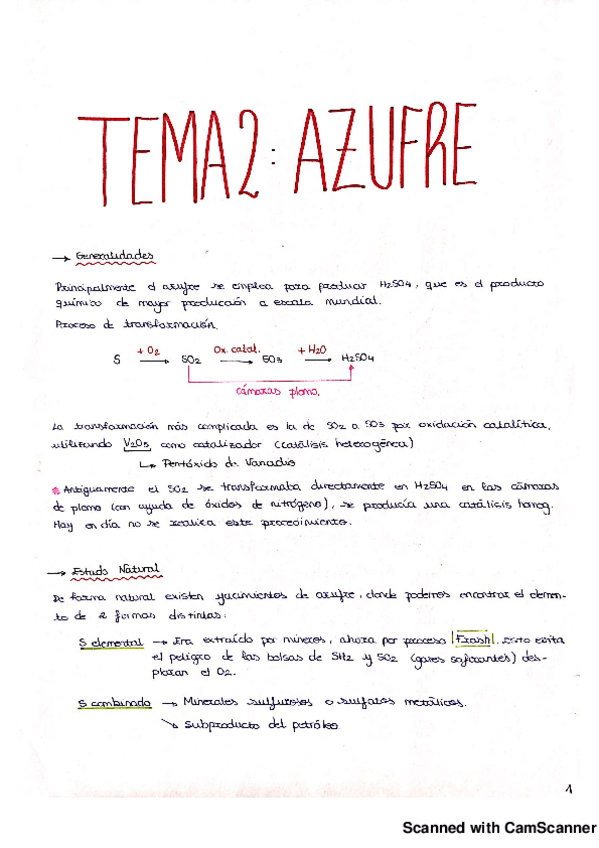 TEMA2: AZUFRE
→ Generalidades
Principalmente el azufre se emplea para producir H2SO4, que es el producto
químico de mayor producción a escala mundial.
Proceso de transformación.
S + O2 → SO2 Ox. catal. → SO3 + H2O → H2SO4
cámaras plomo.
La transformación más complicada es la de SO2 a SO3 por oxidación catalítica,
utilizando V2O5 como catalizador (catálisis heterogénea)
↳ Pentóxido de Vanadio
* Antiguamente el SO2 se transformaba directamente en H2SO4 en las cámaras
de plomo (con ayuda de óxidos de nitrógeno), se producía una catálisis homog.
Hoy en día no se realiza este procedimiento.
→ Estado Natural
De forma natural existen yacimientos de azufre, donde podemos encontrar el elemen-
to de 2 formas distintas:
S elemental → Era extraído por mineros, ahora por proceso Frash. Esto evita
el peligro de las bolsas de SH2 y SO2 (gases asfixiantes) des-
plazan el O2.
S combinado → Minerales sulfurosos o sulfatos metálicos.
↘ Subproducto del petróleo
1
Scanned with CamScanner